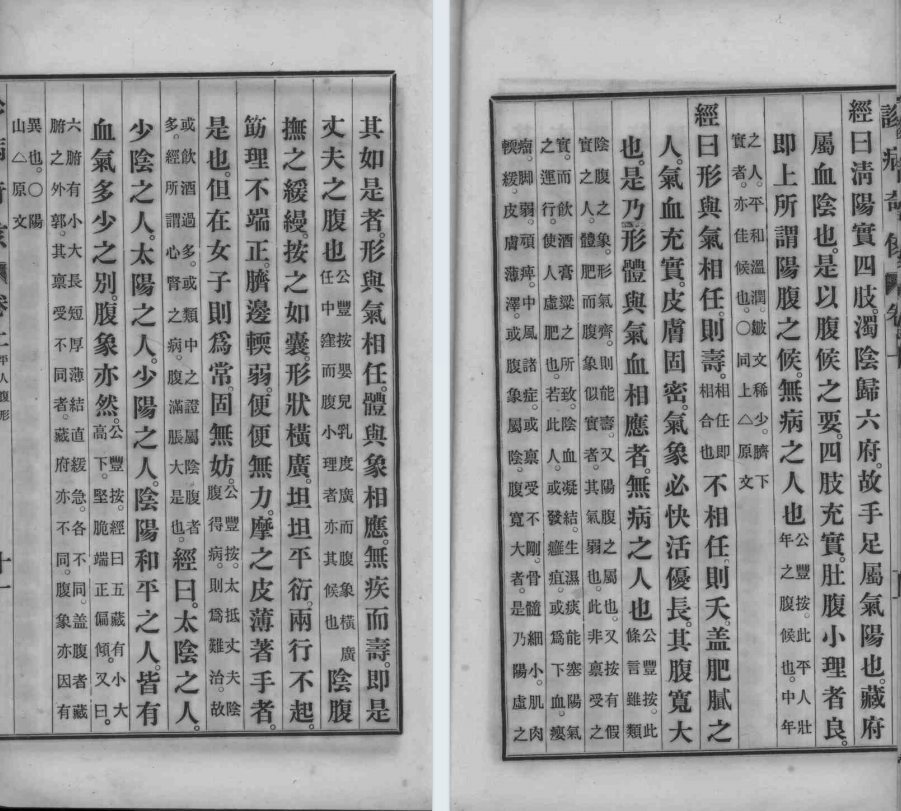 經曰清陽實四肢。濁陰歸六府。故手足屬氣陽也。藏府
屬血陰也。是以腹候之要。四肢充實。肚腹小理者良。
即上所謂陽腹之候。無病之人也公豐按。此平人壯
年之腹候也。中年
之人。平和溫潤。皺文稀少。臍下
實者。亦佳候也。○同上△原文
經曰形與氣相任。則壽。相任即相合也不相任。則夭。蓋肥膩之
人。氣血充實。皮膚固密。氣象必快活優長。其腹寬大
也。是乃形體與氣血相應者。無病之人也公豐按。此
條言雖類
陰腹之象。形氣齊。則能壽。又陽腹之屬也。又按有假
實之人。體肥而腹象似實者。其氣弱也。此非禀受之
實。而飲酒膏粱之所致。陰血凝結。生濕痰。能塞陽氣
之運行。使人虛肥也。若此人。或發癰疽。或爲下血。癭
瘤。脚弱。頑痺。中風諸症。或禀受不剛。骨髓細小。肌肉
輭緩。皮膚薄澤。或腹象屬陰。腹寬大者。是乃陽虛之
其如是者。形與氣相任。體與象相應。無疾而壽。即是
丈夫之腹也公豐按嬰兒乳度廣而腹象橫廣
任中窪而腹小理者亦其候也陰腹
撫之緩縵。按之如囊。形狀橫廣。坦坦平衍。兩行不起。
筋理不端正。臍邊輭弱。便便無力。摩之皮薄著手者。
是也。但在女子則爲常。固無妨。公豐按。太抵丈夫陰
腹得病。則爲難治。故
或飲酒過多。或類中之證屬陰腹者
多。經所謂心腎之病。腹滿脹大是也。經曰。太陰之人。
少陰之人。太陽之人。少陽之人。陰陽和平之人。皆有
血氣多少之別。腹象亦然。公豐按。經曰五藏有小大
高下。堅脆端正偏傾。又曰。
六腑有小大長短厚薄結直緩急。各不同。盖腹者藏
腑之外郭。其禀受不同者。藏府亦不同。腹象亦因有
異也。○陽
山△原文